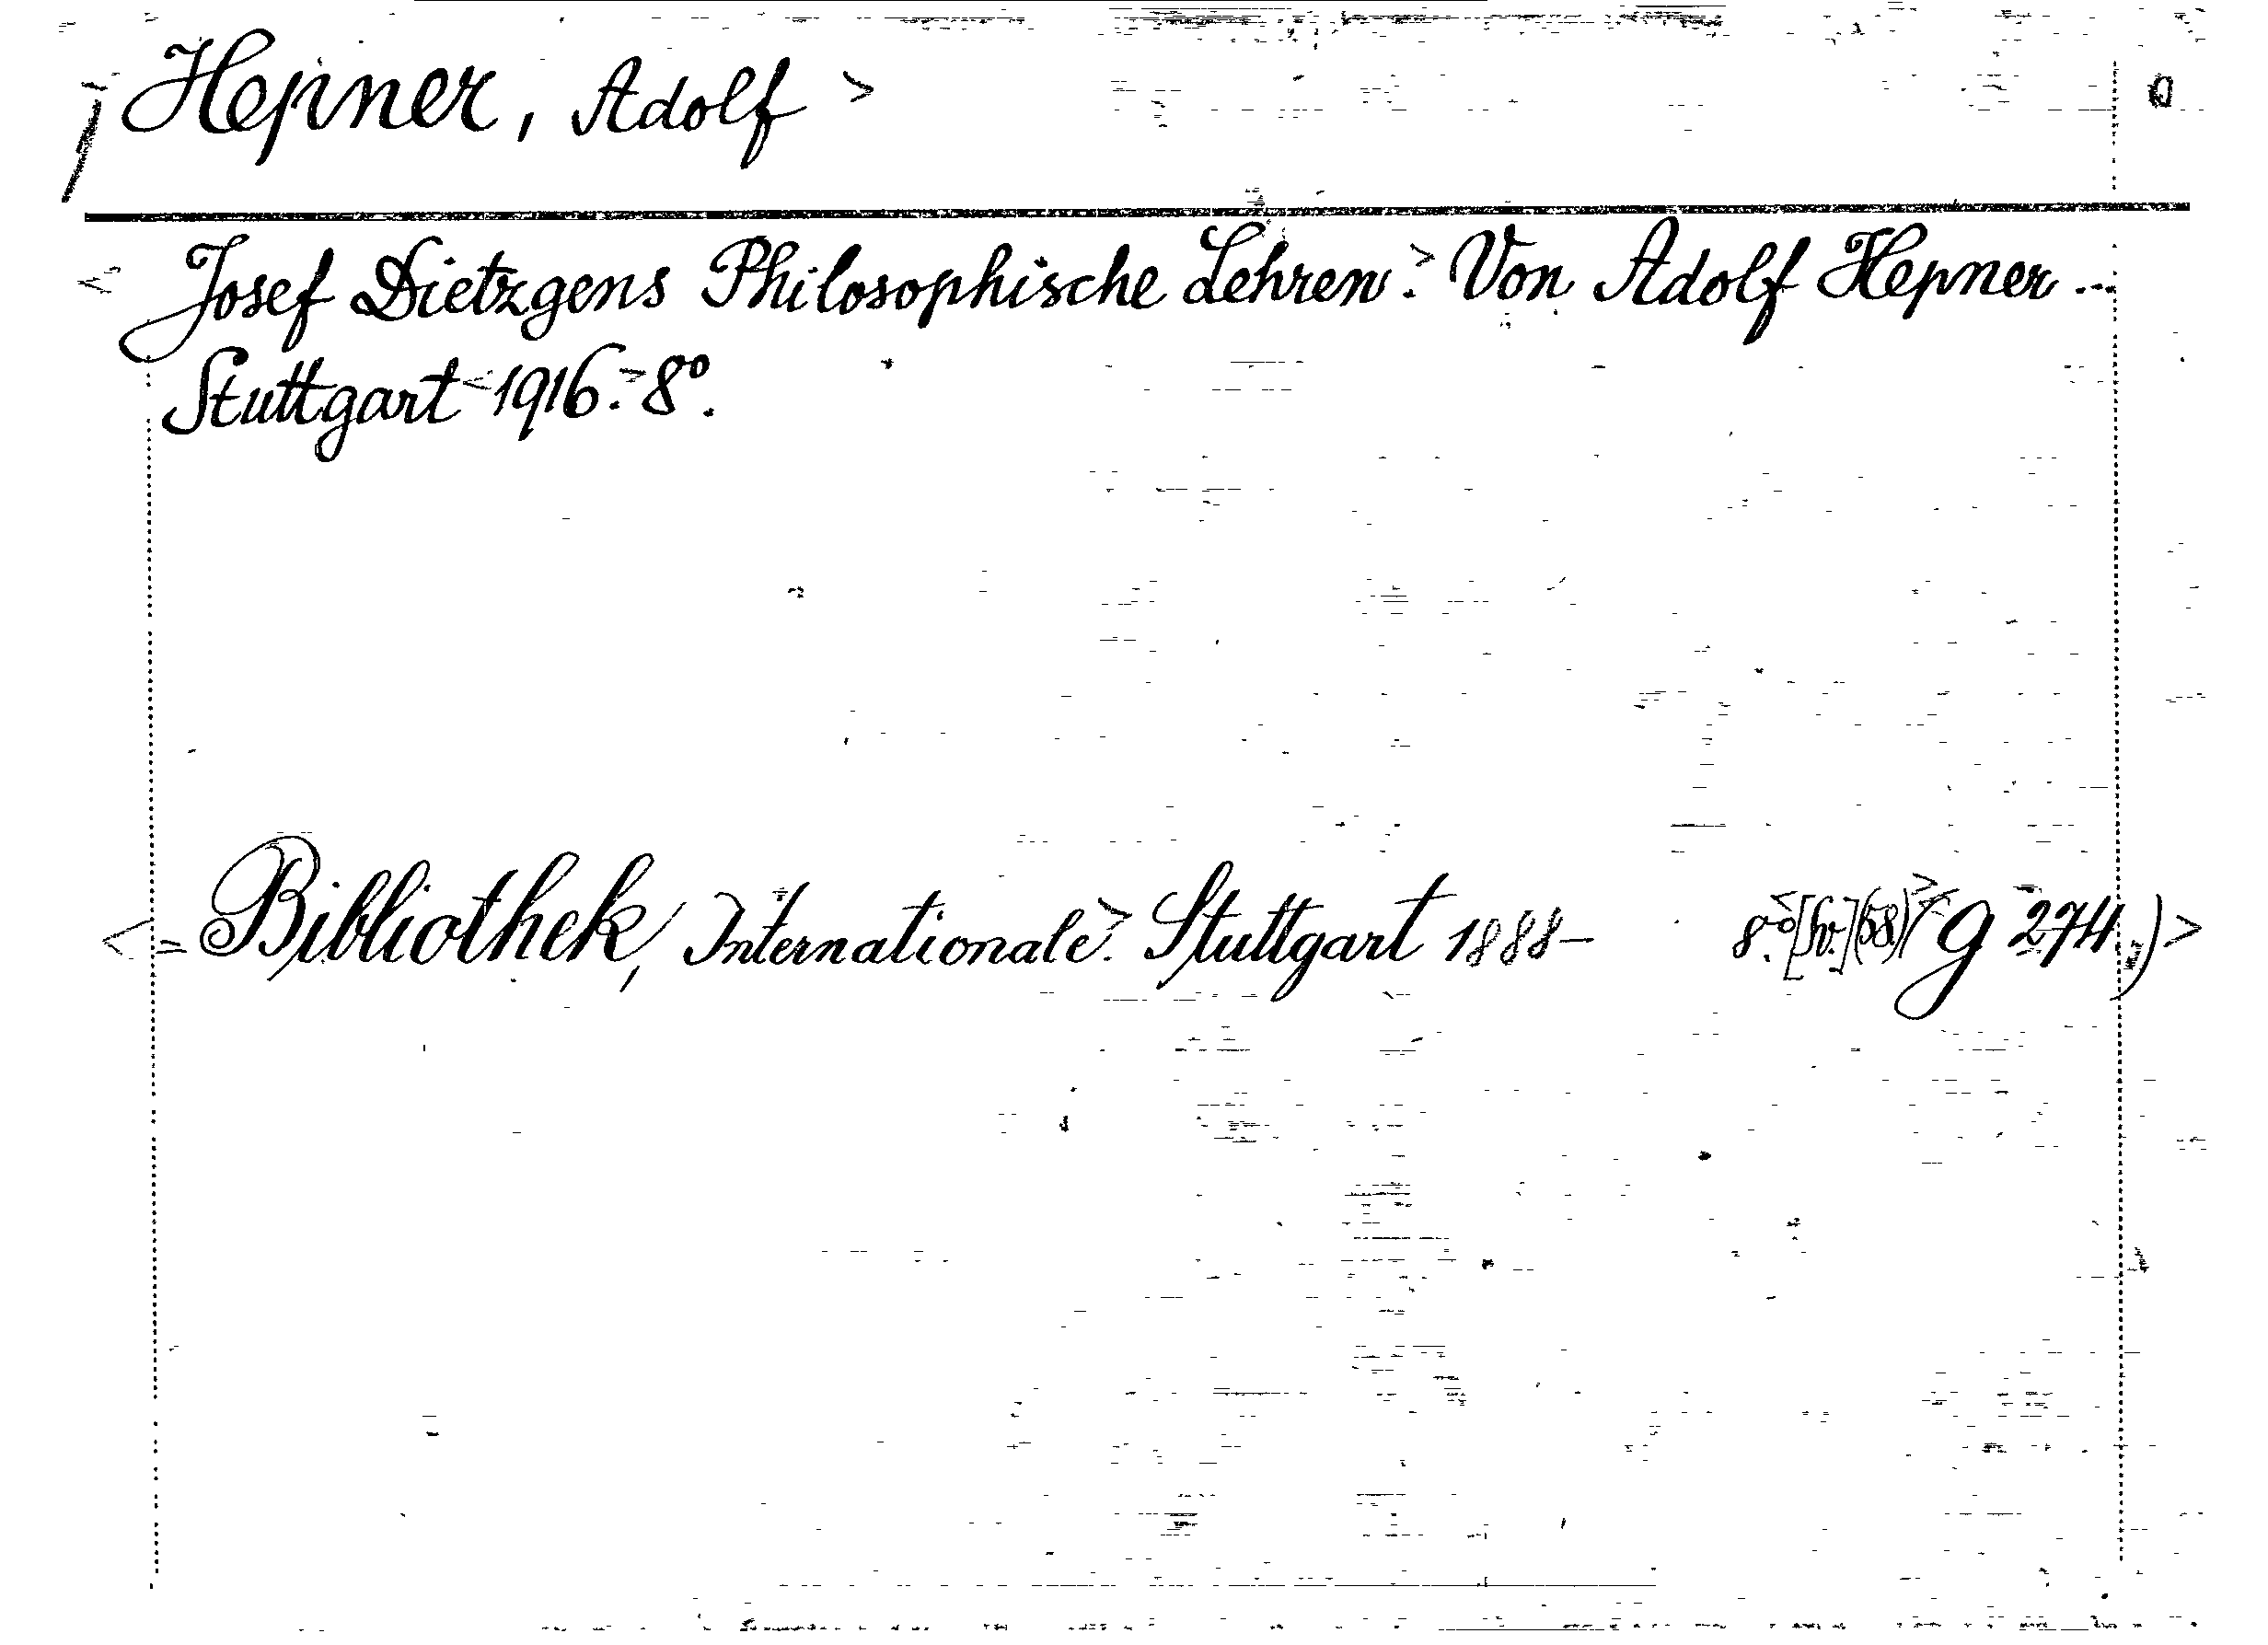 Hepner, Adolf >
< Josef Dietzgens Philosophische Lehren.> Von Adolf Hepner ...
Stuttgart <1916.> 8°.
< = Bibliothek, Internationale.> Stuttgart 1888– 8.° (58) G 274.) >